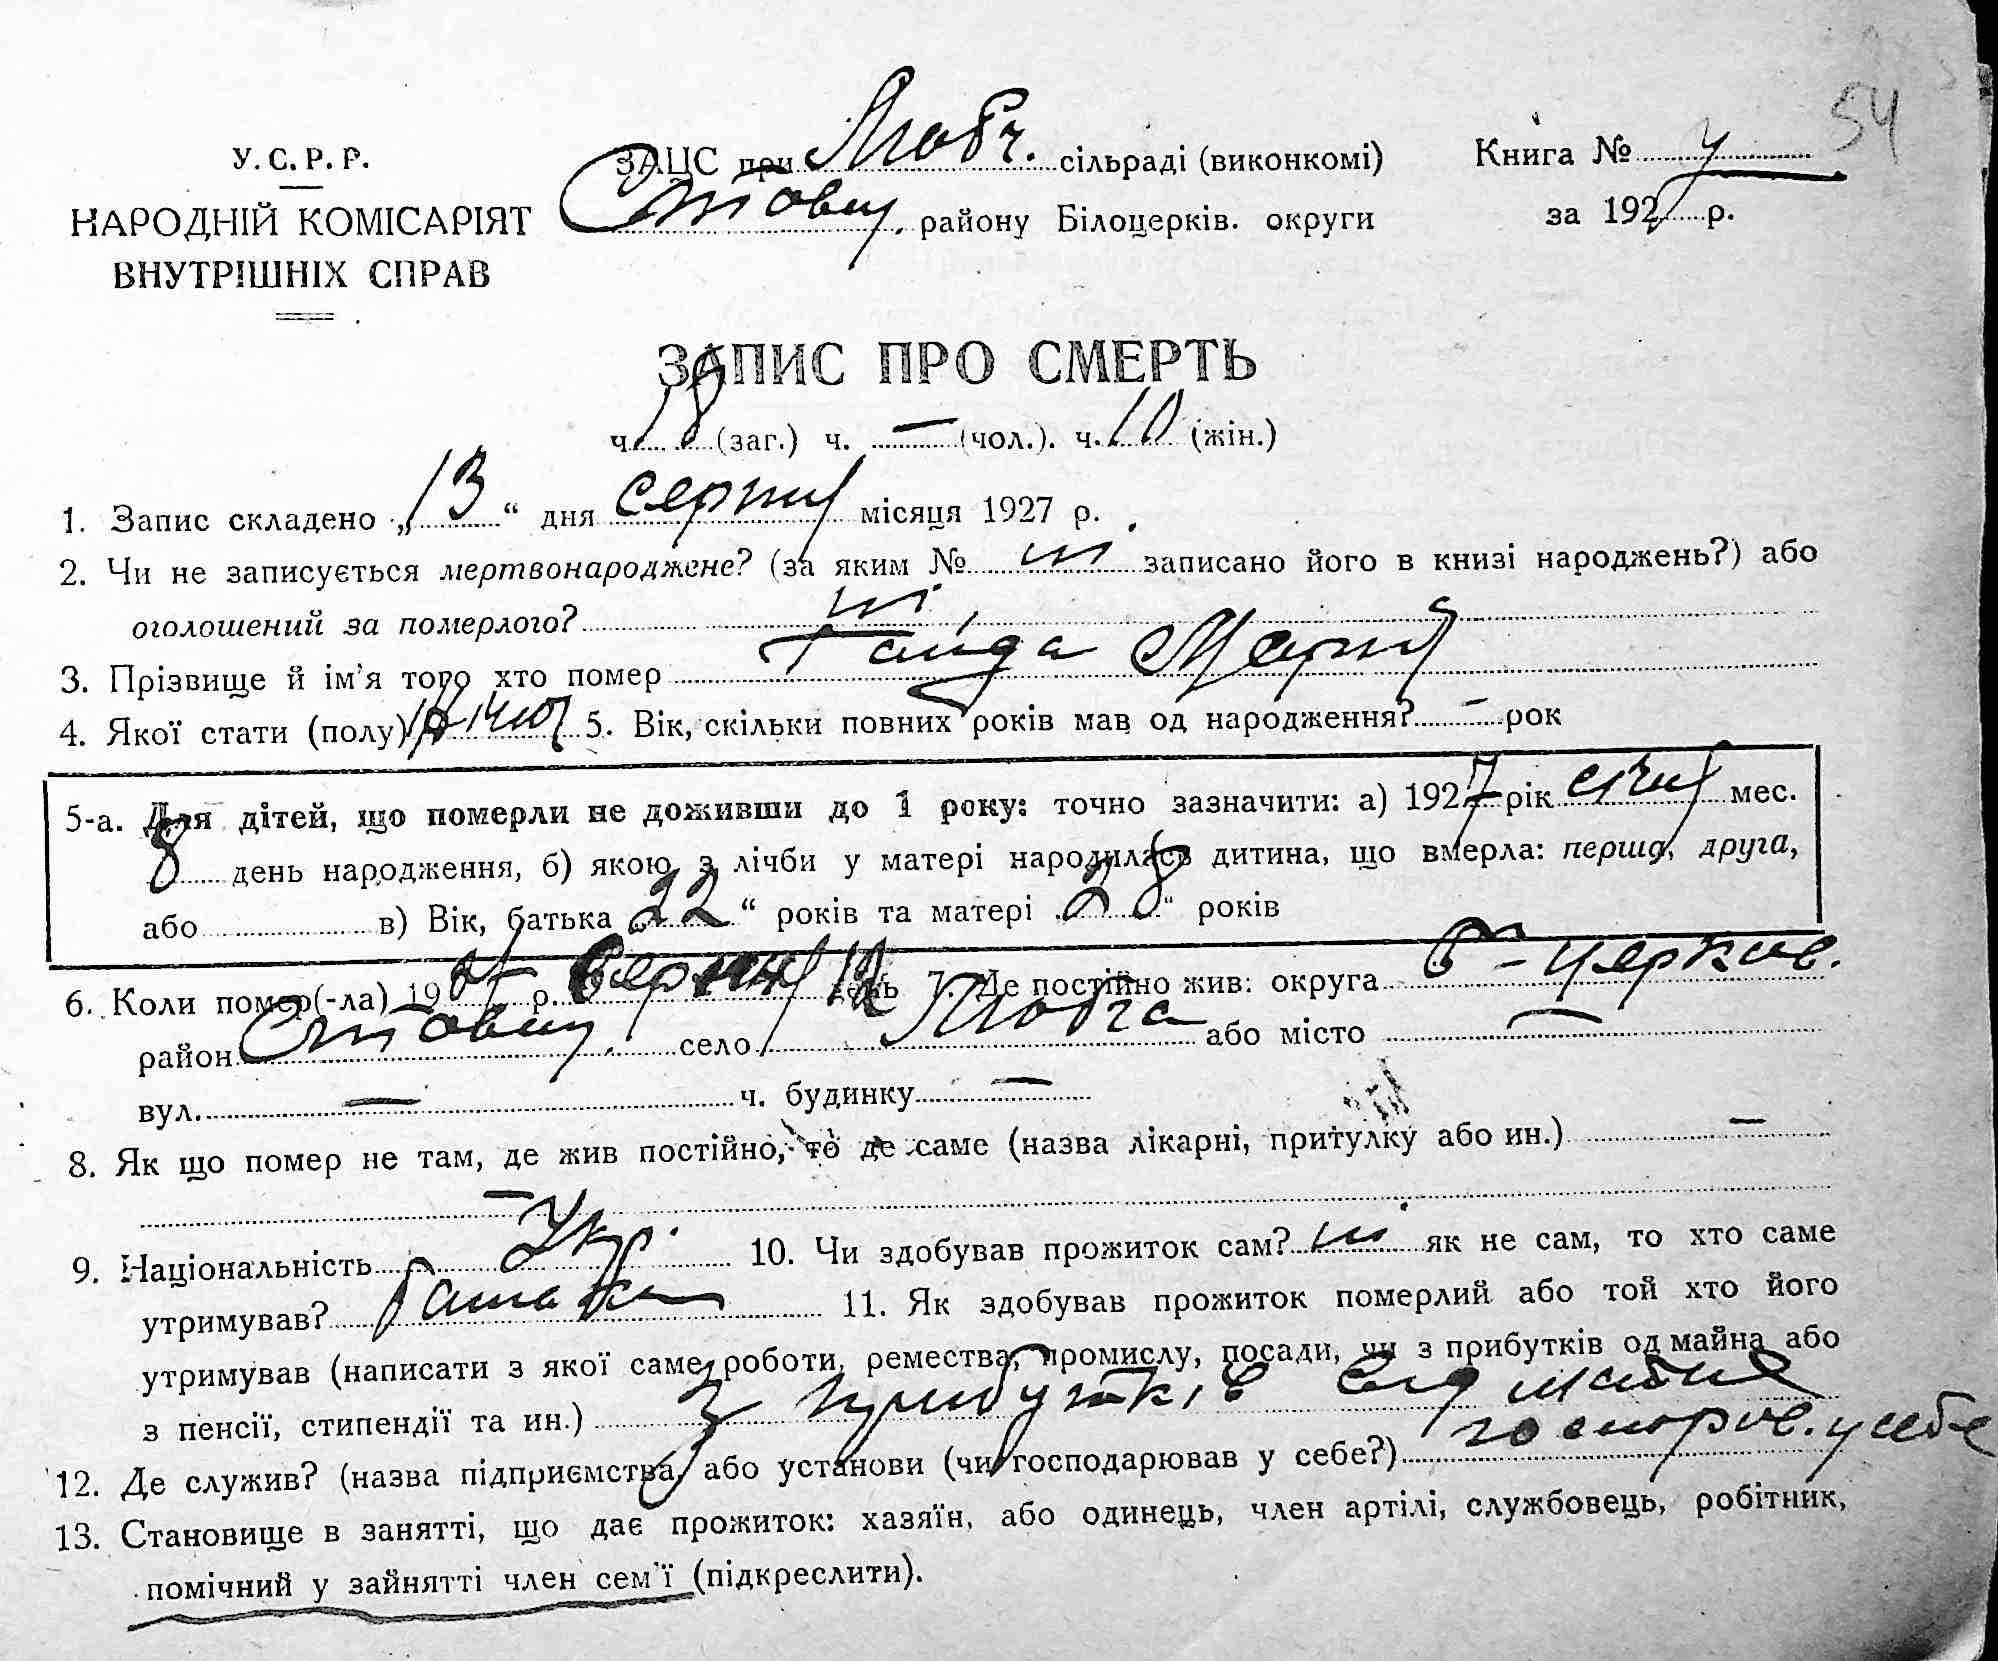 54
У.С.Р.Р.
НАРОДНІЙ КОМІСАРІЯТ
ВНУТРІШНІХ СПРАВ
ЗАЦС при Любч. сільраді (виконкомі)
району Білоцерків. округи
Книга №
за 1927 р.
ЗАПИС ПРО СМЕРТЬ
ч. 18 (заг.) ч. — (чол.). ч. 10 (жін.)
1. Запис складено „13“ дня серпня місяця 1927 р.
2. Чи не записується мертвонароджене? (за яким № ні записано його в книзі народжень?) або
оголошений за померлого? ні
3. Прізвище й ім'я того хто помер Гайда Марія
4. Якої стати (полу) жіноч 5. Вік, скільки повних років мав од народження? – рок
5-а. Для дітей, що померли не доживши до 1 року: точно зазначити: а) 1927 рік січня мес.
8 день народження, б) якою з лічби у матері народилась дитина, що вмерла: перша, друга,
або в) Вік, батька „22“ років та матері „28“ років
6. Коли помер(-ла) 1927 р. серпня 12 день 7. Де постійно жив: округа Б-Церков.
район село Любча або місто —
вул. — ч. будинку —
8. Як що помер не там, де жив постійно, то де саме (назва лікарні, притулку або ин.) —
—
9. Національність Укр. 10. Чи здобував прожиток сам? ні як не сам, то хто саме
утримував? Батько 11. Як здобував прожиток померлий або той хто його
утримував (написати з якої саме роботи, ремества, промислу, посади, чи з прибутків од майна або
з пенсії, стипендії та ин.) З прибутків від майна
12. Де служив? (назва підприємства, або установи (чи господарював у себе?) господ. у себе
13. Становище в занятті, що дає прожиток: хазяїн, або одинець, член артілі, службовець, робітник,
помічний у зайнятті член сем'ї (підкреслити).